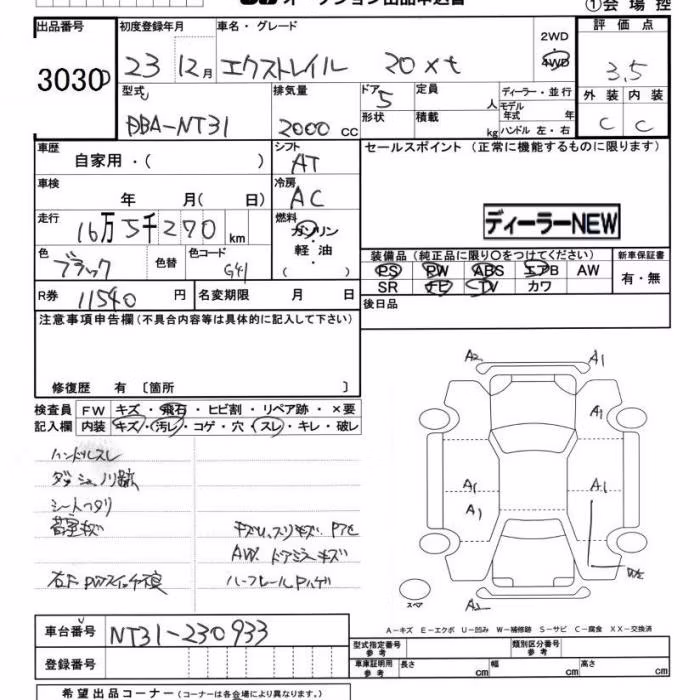 オークション出品申込書
①会場控
出品番号 初度登録年月 車名・グレード 2WD 評価点
3030 23 12月 エクストレイル 20xt 4WD 3.5
型式 排気量 ドア 定員 ディーラー・並行 外装 内装
5 人 モデル年式 年
DBA-NT31 2000cc 形状 積載 kg ハンドル 左・右 C C
車歴 シフト セールスポイント(正常に機能するものに限ります)
自家用・( ) AT
車検 冷房
年 月( 日) AC
走行 燃料 ディーラーNEW
16万5千270km ガソリン
軽油
色 色替 色コード ( ) 装備品(純正品に限り○をつけてください) 新車保証書
ブラック G41 PS PW ABS エアB AW 有・無
R券 11540円 名変期限 月 日 SR ナビ TV カワ
後日品
注意事項申告欄(不具合内容等は具体的に記入して下さい)
修復歴 有〔箇所 〕
検査員 FW キズ・飛石・ヒビ割・リペア跡・×要
記入欄 内装 キズ・汚レ・コゲ・穴・スレ・キレ・破レ
A2 A1
A1
A1 A1
A1
ハンドルスレ
ダッシュノリ跡
シートヘタリ
荷室キズ
キズU、スリキズ
AW、ドアミラーキズ
右F PWスイッチ不良
スペア
A2
A-キズ E-エクボ U-凹み W-補修跡 S-サビ C-腐食 XX-交換済
車台番号 NT31-230933
登録番号
型式指定番号 参考 類別区分番号 参考
車庫証明用 参考 長さ cm 幅 cm 高さ cm
希望出品コーナー(コーナーは各会場により異なります。)